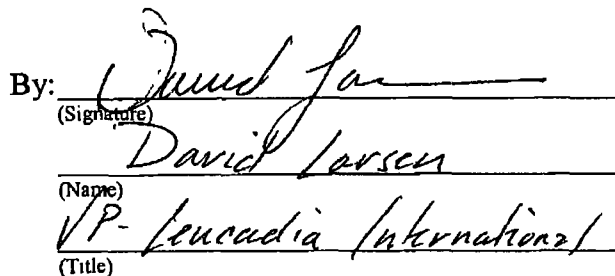 By: David Lar
(Signature)
David Larsen
(Name)
VP- Leucadia International
(Title)